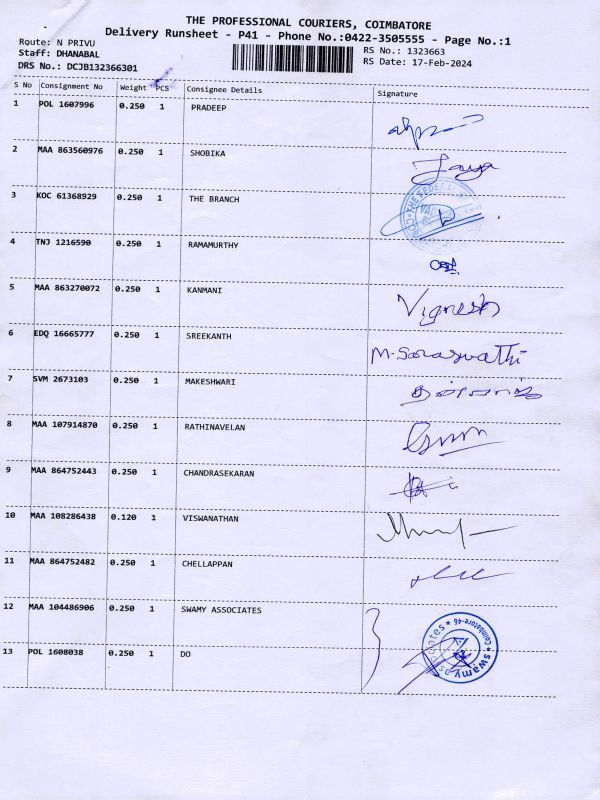 THE PROFESSIONAL COURIERS, COIMBATORE
Delivery Runsheet - P41 - Phone No.:0422-3505555 - Page No.:1
Route: N PRIVU
RS No.: 1323663
Staff: DHANABAL
RS Date: 17-Feb-2024
DRS No.: DCJB132366301
S No Consignment No Weight PCS Consignee Details Signature
1 POL 1607996 0.250 1 PRADEEP
2 MAA 863560976 0.250 1 SHOBIKA Jaya
3 KOC 61368929 0.250 1 THE BRANCH
4 TNJ 1216590 0.250 1 RAMAMURTHY
5 MAA 863270072 0.250 1 KANMANI Vignesh
6 EDQ 16665777 0.250 1 SREEKANTH M. Saraswathi
7 SVM 2673103 0.250 1 MAKESHWARI
8 MAA 107914870 0.250 1 RATHINAVELAN
9 MAA 864752443 0.250 1 CHANDRASEKARAN
10 MAA 108286438 0.120 1 VISWANATHAN
11 MAA 864752482 0.250 1 CHELLAPPAN
12 MAA 104486906 0.250 1 SWAMY ASSOCIATES
13 POL 1608038 0.250 1 DO
swamy associates * Coimbatore-46 *